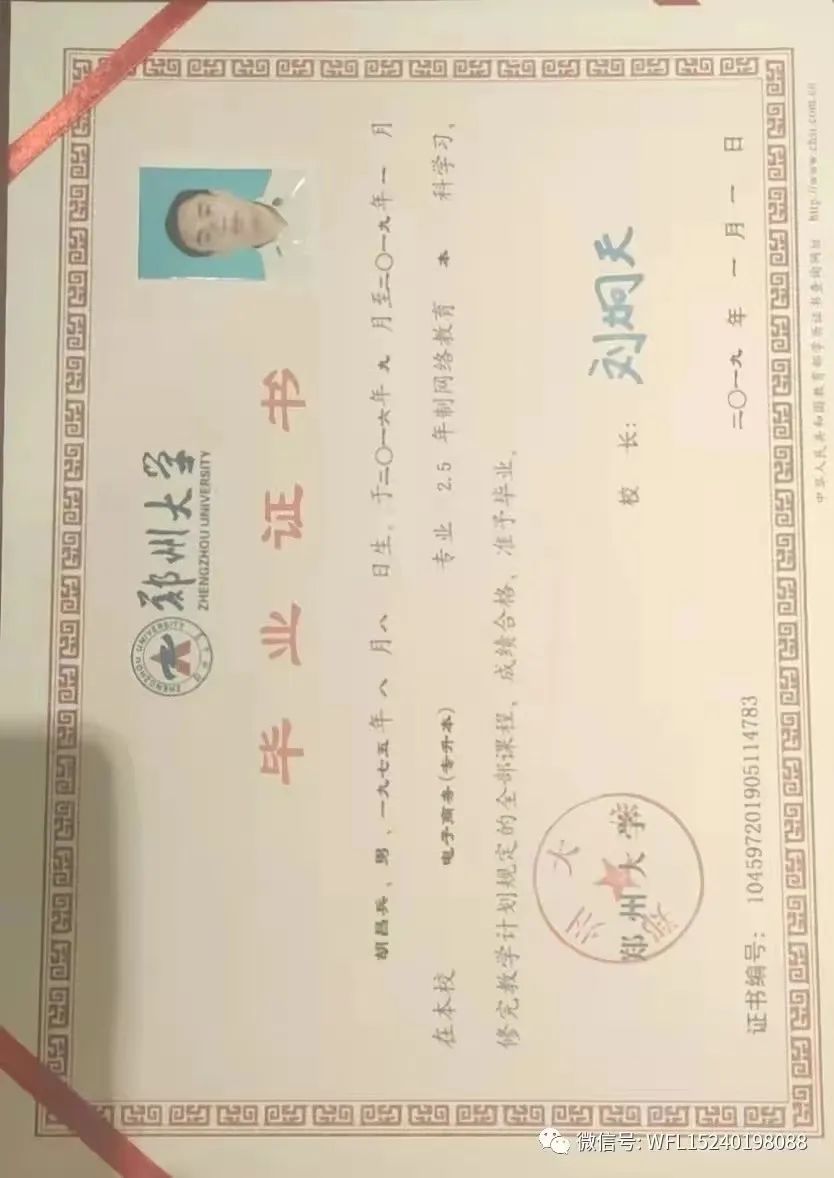 郑州大学
ZHENGZHOU UNIVERSITY
ZHENGZHOU UNIVERSITY
毕业证书
胡昌兵、男,一九七五年 八 月八 日生。于二〇一六年 九 月至二〇一九年 一 月
在本校 电子商务(专升本) 专业 2.5 年制网络教育 本 科学习,
修完教学计划规定的全部课程,成绩合格,准予毕业。
郑州大学
校 长: 刘炯天
证书编号: 104597201905114783
二〇一九 年 一 月 一 日
中华人民共和国教育部学历证书查询网址 http://www.chsi.com.cn
微信号: WFL15240198088